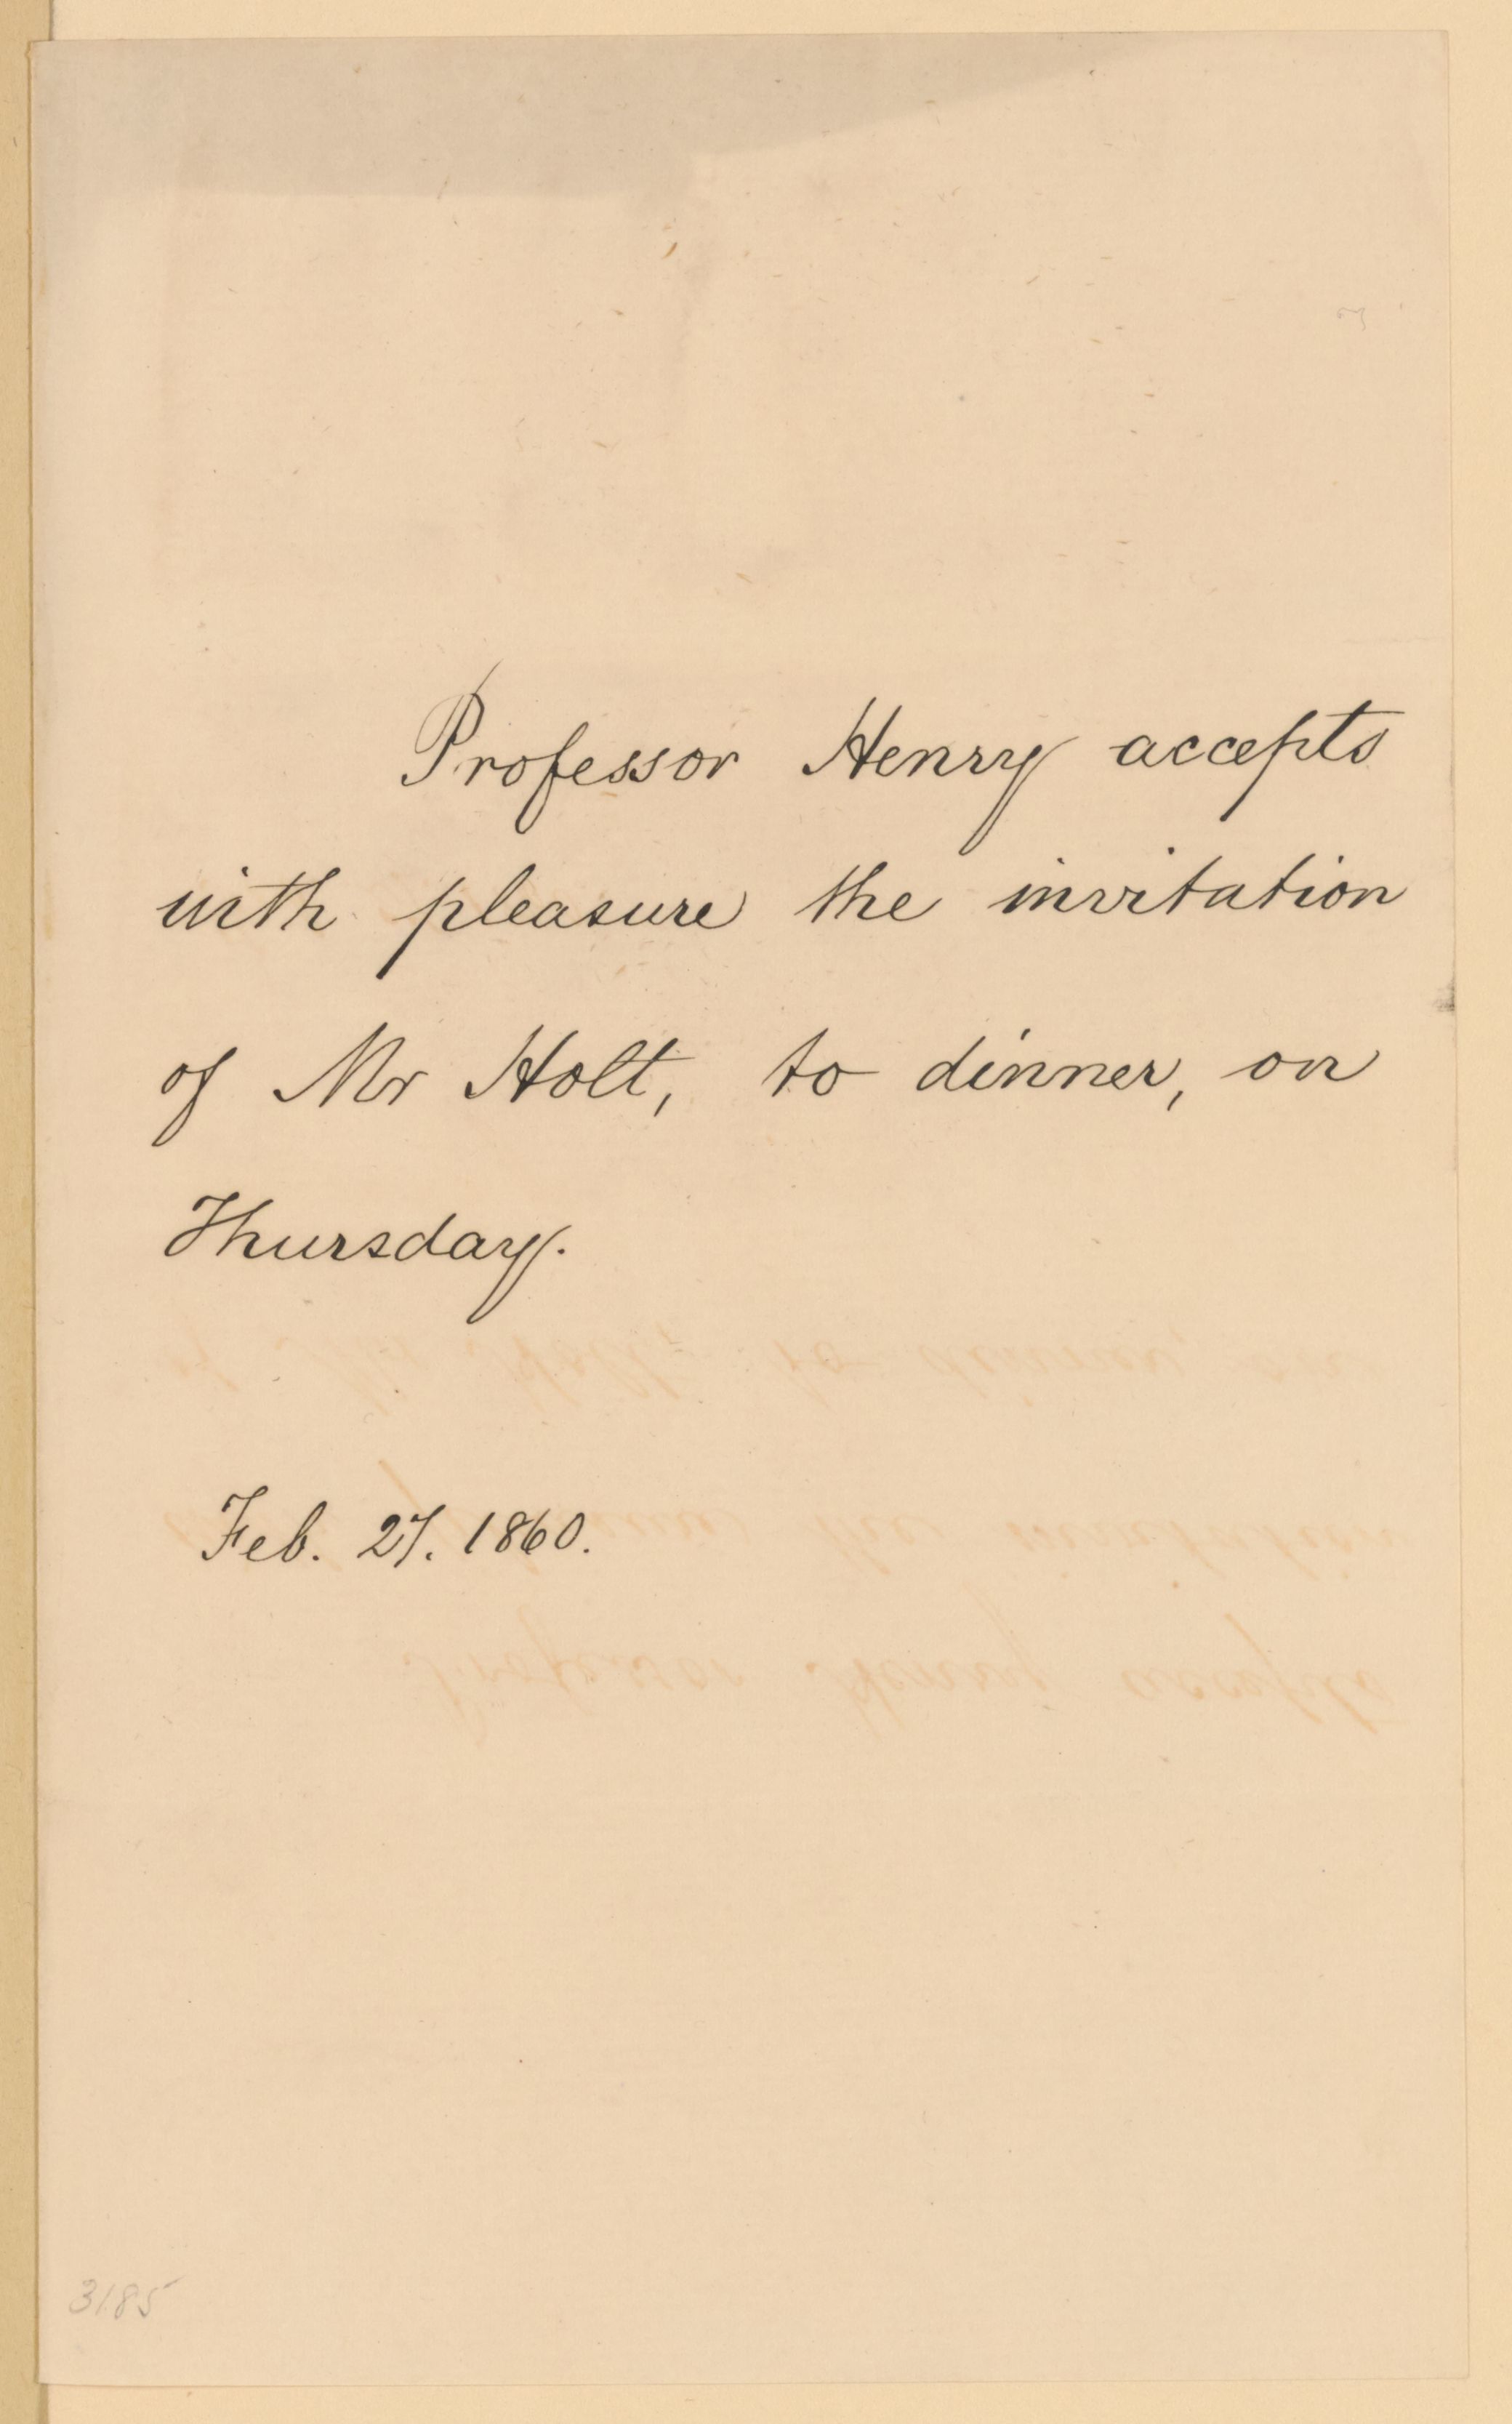 Professor Henry accepts
with pleasure the invitation
of Mr Holt, to dinner, on
Thursday.
Feb. 27. 1860.
3185